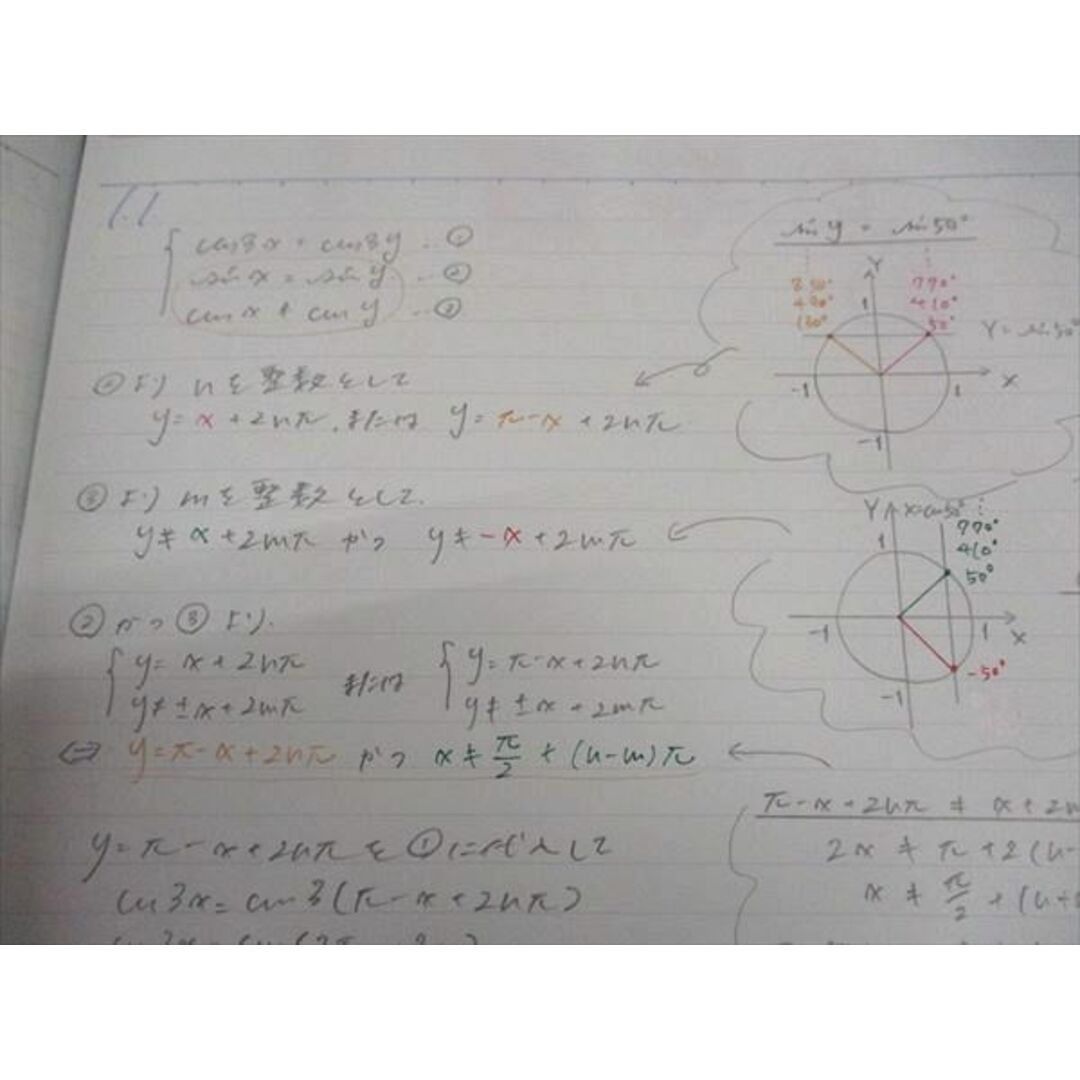 1.1
cos3x = cos3y …①
sin x = sin y …②
cos x ≠ cos y …③
②より nを整数として
y = x + 2nπ, または y = π-x + 2nπ
③より mを整数として.
y ≠ x + 2mπ かつ y ≠ -x + 2mπ
②かつ③より.
y = x + 2nπ
y ≠ ±x + 2mπ
または
y = π-x + 2nπ
y ≠ ±x + 2mπ
⇔ y = π-x + 2nπ かつ x ≠ π/2 + (n-m)π
y = π-x + 2nπ を①に代入して
cos3x = cos3(π-x + 2nπ)
sin y = sin 50°
850°
490°
130°
770°
410°
50°
Y
1
Y = sin 50°
-1
1
X
-1
Y
X = cos 50°
770°
410°
50°
1
-1
1
X
-50°
-1
π-x + 2nπ ≠ x + 2m
2x ≠ π + 2(n-
x ≠ π/2 + (n